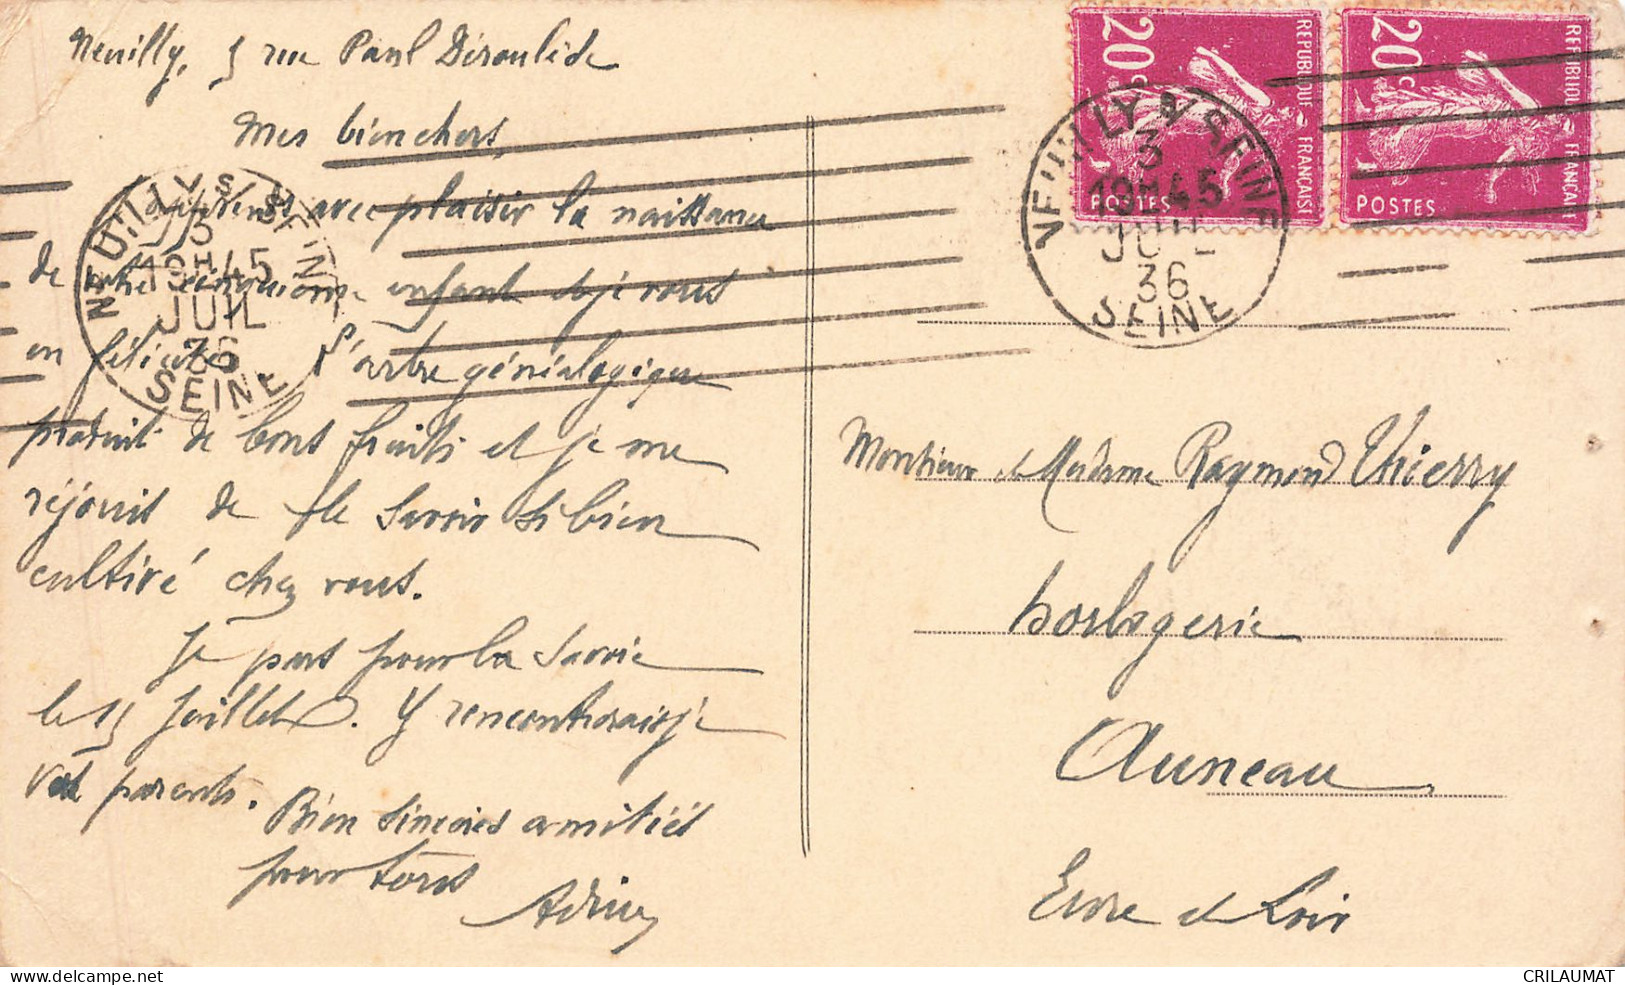 Neuilly, 5 rue Paul Déroulède
Mes bien chers,
J'apprends avec plaisir la naissance
de votre cinquième enfant et je vous
en félicite. L'arbre généalogique
produit de bons fruits et je me
réjouis de le savoir si bien
cultivé chez vous.
Je pars pour la Savoie
le 15 Juillet. Y rencontrerai-je
vos parents.
Bien sincères amitiés
pour tous
NEUILLY S SEINE
3
19H45
JUIL
36
SEINE
20c
REPUBLIQUE FRANÇAISE
POSTES
20c
REPUBLIQUE FRANÇAISE
POSTES
NEUILLY S SEINE
3
19H45
JUIL
36
SEINE
Monsieur et Madame Raymond Thierry
horlogerie
Auneau
Eure et Loir
CRILAUMAT